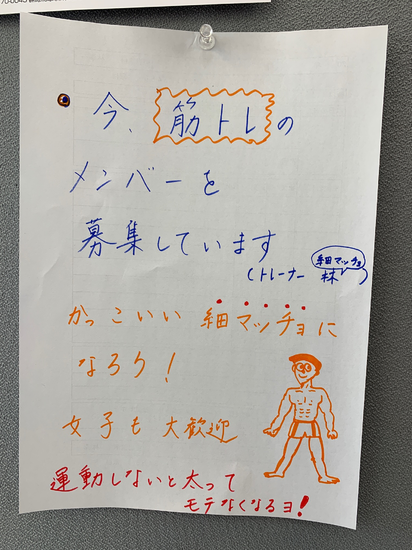 今、筋トレの
メンバーを
募集しています
細マッチョ
(トレーナー 林)
かっこいい 細マッチョに
なろう!
女子も大歓迎
運動しないと太って
モテなくなるヨ!